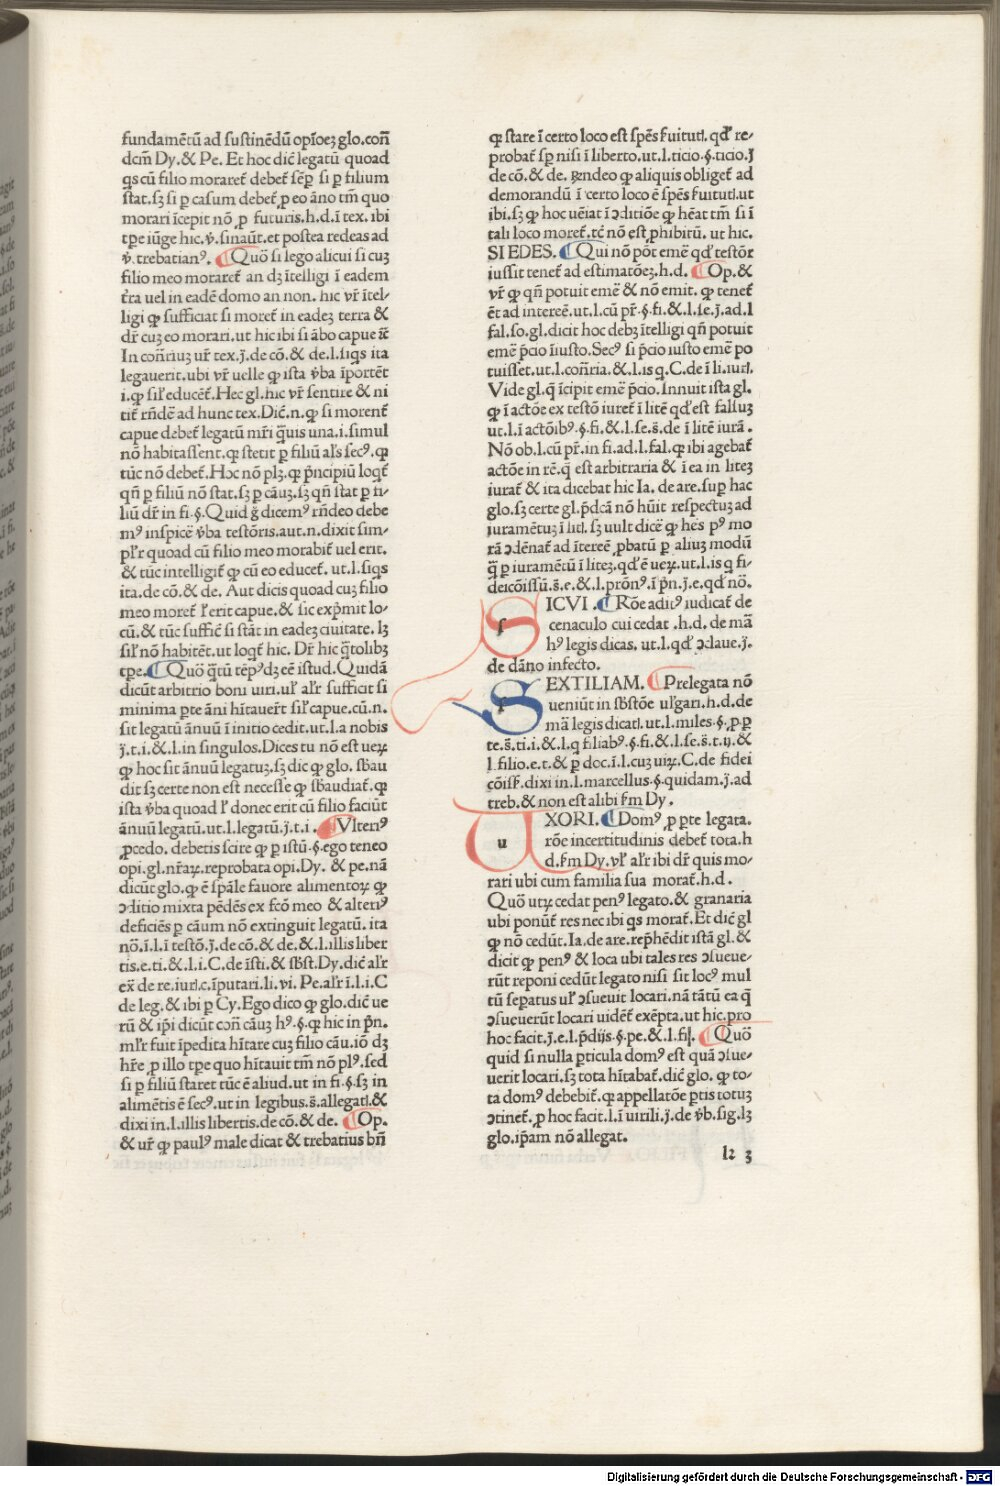 fundamētū ad sustinēdū opīoeȝ glo.con̄
dcm̄ Dy.& Pe. Et hoc dic̄ legatū quoad
qs cū filio moraret̄ debet̄ sēꝑ si ꝑ filium
stat.sȝ si ꝑ casum debet̄ ꝑ eo āno tm̄ quo
morari īcepit nō ꝓ futuris.h.d.ī tex. ibi
tꝑe iūge hic.v̄.sinaūt.et postea redeas ad
v̄.trebatianꝰ. Quō si lego alicui si cuȝ
filio meo moraret̄ an dȝ ītelligi ī eadem
t̄ra uel in eadē domo an non. hic vr̄ ītel⸗
ligi ꝙ sufficiat si moret̄ in eadeȝ terra &
dr̄ cuȝ eo morari.ut hic ibi si ābo capue īt̄
In con̄riuȝ ur̄ tex.j.de cō.& de.l.siqs ita
legauerit.ubi vr̄ uelle ꝙ ista v̄ba īportēt
i.ꝙ sil̄ educēt̄. Hec gl.hic vr̄ sentire & ni
tit̄ rn̄dē ad hunc tex. Dic̄.n.ꝙ si morent̄
capue debet̄ legatū mr̄i q̄uis una.i.simul
nō habitassent.ꝙ stetit ꝑ filiū al's secꝰ.ꝙ
tūc nō debet̄. Hoc nō plȝ.ꝙ p̄ncipiū loqt̄
qn̄ ꝑ filiū nō stat.sȝ ꝑ cāuȝ.sȝ qn̄ stat ꝑ fi⸗
liū dr̄ in fi.§. Quid g̊ dicemꝰ rn̄deo debe
mꝰ inspicē v̄ba testōris.aut.n.dixit sim⸗
pl'r quoad cū filio meo morabit̄ uel erit.
& tūc intelligit̄ ꝙ cū eo educet̄. ut.l.siqs
ita.de cō.& de. Aut dicis quoad cuȝ filio
meo moret̄ l' erit capue.& sic exp̄mit lo⸗
cū.& tūc suffic̄ si stāt in eadeȝ ciuitate. lȝ
sil' nō habitēt.ut loqt̄ hic. Dr̄ hic q̄tolibȝ
tꝑe. Quō q̄tū tēpꝰ dȝ eē istud. Quidā
dicūt arbitrio boni uiri.ul' al'r sufficit si
minima ꝑte āni hītauer̄t sil' capue.cū.n.
sit legatū ānuū ī initio cedit.ut.l.a nobis
j.t.i.& l.in singulos. Dices tu nō est ueꝝ
ꝙ hoc sit ānuū legatuȝ.sȝ dic ꝙ glo. sb̄au
dit sȝ certe non est necesse ꝙ sb̄audiat̄.ꝙ
ista v̄ba quoad l' donec erit cū filio faciūt
ānuū legatū.ut.l.legatū.j.t.i. Vlteriꝰ
ꝓcedo. debetis scire ꝙ ꝑ istū §.ego teneo
opi.gl.nr̄aꝝ.reprobata opi.Dy. & pe.nā
dicūt glo.ꝙ ē spāle fauore alimentoꝝ ꝙ
ↄditio mixta pēdēs ex fcō meo & alteriꝰ
deficiēs ꝑ cāum nō extinguit legatū. ita
nō.ī.l.ī testō.j.de cō.& de.& l.illis liber
tis.e.ti.& l.i.C.de īsti.& sb̄st.Dy.dic̄ al'r
ex̄ de re.iurl.c.īputari.li.vi. Pe.al'r ī.l.i.C
de leg.& ibi ꝑ Cy. Ego dico ꝙ glo.dic̄ ue
rū & ip̄i dicūt con̄ cāuȝ hꝰ.§.ꝙ hic in p̄n.
ml'r fuit īpedita hītare cuȝ filio cāu.iō dȝ
hr̄e ꝓ illo tꝑe quo hītauit tm̄ nō plꝰ.sed
si ꝑ filiū staret tūc ē aliud.ut in fi.§.sȝ in
alimētis ē secꝰ.ut in legibus.s̄.allegatl.&
dixi in.l.illis libertis.de cō.& de. Op.
& ur̄ ꝙ paulꝰ male dicat & trebatius bn̄
ꝙ stare ī certo loco est spēs ƒuitutl.qd' re⸗
probat̄ sꝑ nisi ī liberto.ut.l.ticio.§.ticio.j
de cō.& de. rn̄deo ꝙ aliquis obliget̄ ad
demorandū ī certo loco ē spēs ƒuitutl.ut
ibi.sȝ ꝙ hoc uēiat ī ↄditiōe ꝙ hēat tm̄ si ī
tali loco moret̄.tc̄ nō est ꝓhibitū. ut hic.
SI EDES. Qui nō pōt emē qd' testōr
iussit tenet̄ ad estimatōeȝ.h.d. Op.&
vr̄ ꝙ qn̄ potuit emē & nō emit. ꝙ tenet̄
ēt ad intereē.ut.l.cū pr̄.§.fi.& l.se.j.ad.l
fal.so.gl.dicit hoc debȝ ītelligi qn̄ potuit
emē p̄cio īiusto. Secꝰ si p̄cio iusto emē po
tuisset.ut.l.con̄ria.& l.is q.C.de ī li.iurl.
Vide gl.q̄ īcipit emē p̄cio. Innuit ista gl.
ꝙ ī actōe ex testō iuret̄ ī litē qd' est falsuȝ
ut.l.ī actōibꝰ.§.fi.& l.se.s̄.de ī litē iurā.
Nō ob.l.cū pr̄.in fi.ad.l.fal.ꝙ ibi agebat̄
actōe in rē.q̄ est arbitraria & ī ea in liteȝ
iurat̄ & ita dicebat hic Ia. de are.suꝑ hac
glo.sȝ certe gl.p̄dcā nō hūit respectuȝ ad
iuramētuȝ ī litl.sȝ uult dicē ꝙ hēs pꝰ mo
rā ↄdēnat̄ ad ītereē ꝓbatū ꝑ aliuȝ modū
q̄ȝ ꝑ iuramētū ī liteȝ.qd' ē ueꝝ.ut.l.is q fi⸗
deicōissū.s̄.e.& l.prōnꝰ.ī p̄n.j.e.qd' nō.
SICVI. Rōe aditꝰ iudicat̄ de
cenaculo cui cedat .h.d. de mā
hꝰ legis dicas. ut.l.qd' ↄclaue.j.
de dāno infecto.
SEXTILIAM. Prelegata nō
ueniūt in sb̄stōe ul'gari.h.d.de
mā legis dicatl.ut.l.miles.§.ꝓ ꝑ
te.s̄.ti.i.& l.q filiabꝰ.§.fi.& l.se.s̄.t.ij.&
l.filio.e.t.& ꝑ doc.ī.l.cuȝ uiꝝ.C.de fidei
cōiss̄.dixi in.l.marcellus.§.quidam.j.ad
treb.& non est alibi f̄m Dy.
VXORI. Domꝰ ꝓ ꝑte legata.
rōe incertitudinis debet̄ tota.h
d.f̄m Dy.vl' al'r ibi dr̄ quis mo⸗
rari ubi cum familia sua morat̄.h.d.
Quō utꝝ cedat penꝰ legato.& granaria
ubi ponūt̄ res nec ibi qs morat̄. Et dic̄ gl
ꝙ nō cedūt.Ia.de are.rep̄hēdit istā gl.&
dicit ꝙ penꝰ & loca ubi tales res ↄsueue⸗
rūt reponi cedūt legato nisi sit locꝰ mul
tū seꝑatus ul' ↄsueuit locari.nā tātū ea q̄
ↄsueuerūt locari uidēt̄ exēpta.ut hic.pro
hoc facit.j.e.l.p̄dijs.§.pe.& l.fil. Quō
quid si nulla ꝑticula domꝰ est quā ↄsue⸗
uerit locari.sȝ tota hītabat̄.dic̄ glo. ꝙ to⸗
ta domꝰ debebit̄.ꝙ appellatōe ꝑtis totuȝ
ↄtinet̄.ꝓ hoc facit.l.ī uirili.j.de v̄b.sig.lȝ
glo.ip̄am nō allegat.
l2 3
Digitalisierung gefördert durch die Deutsche Forschungsgemeinschaft - DFG